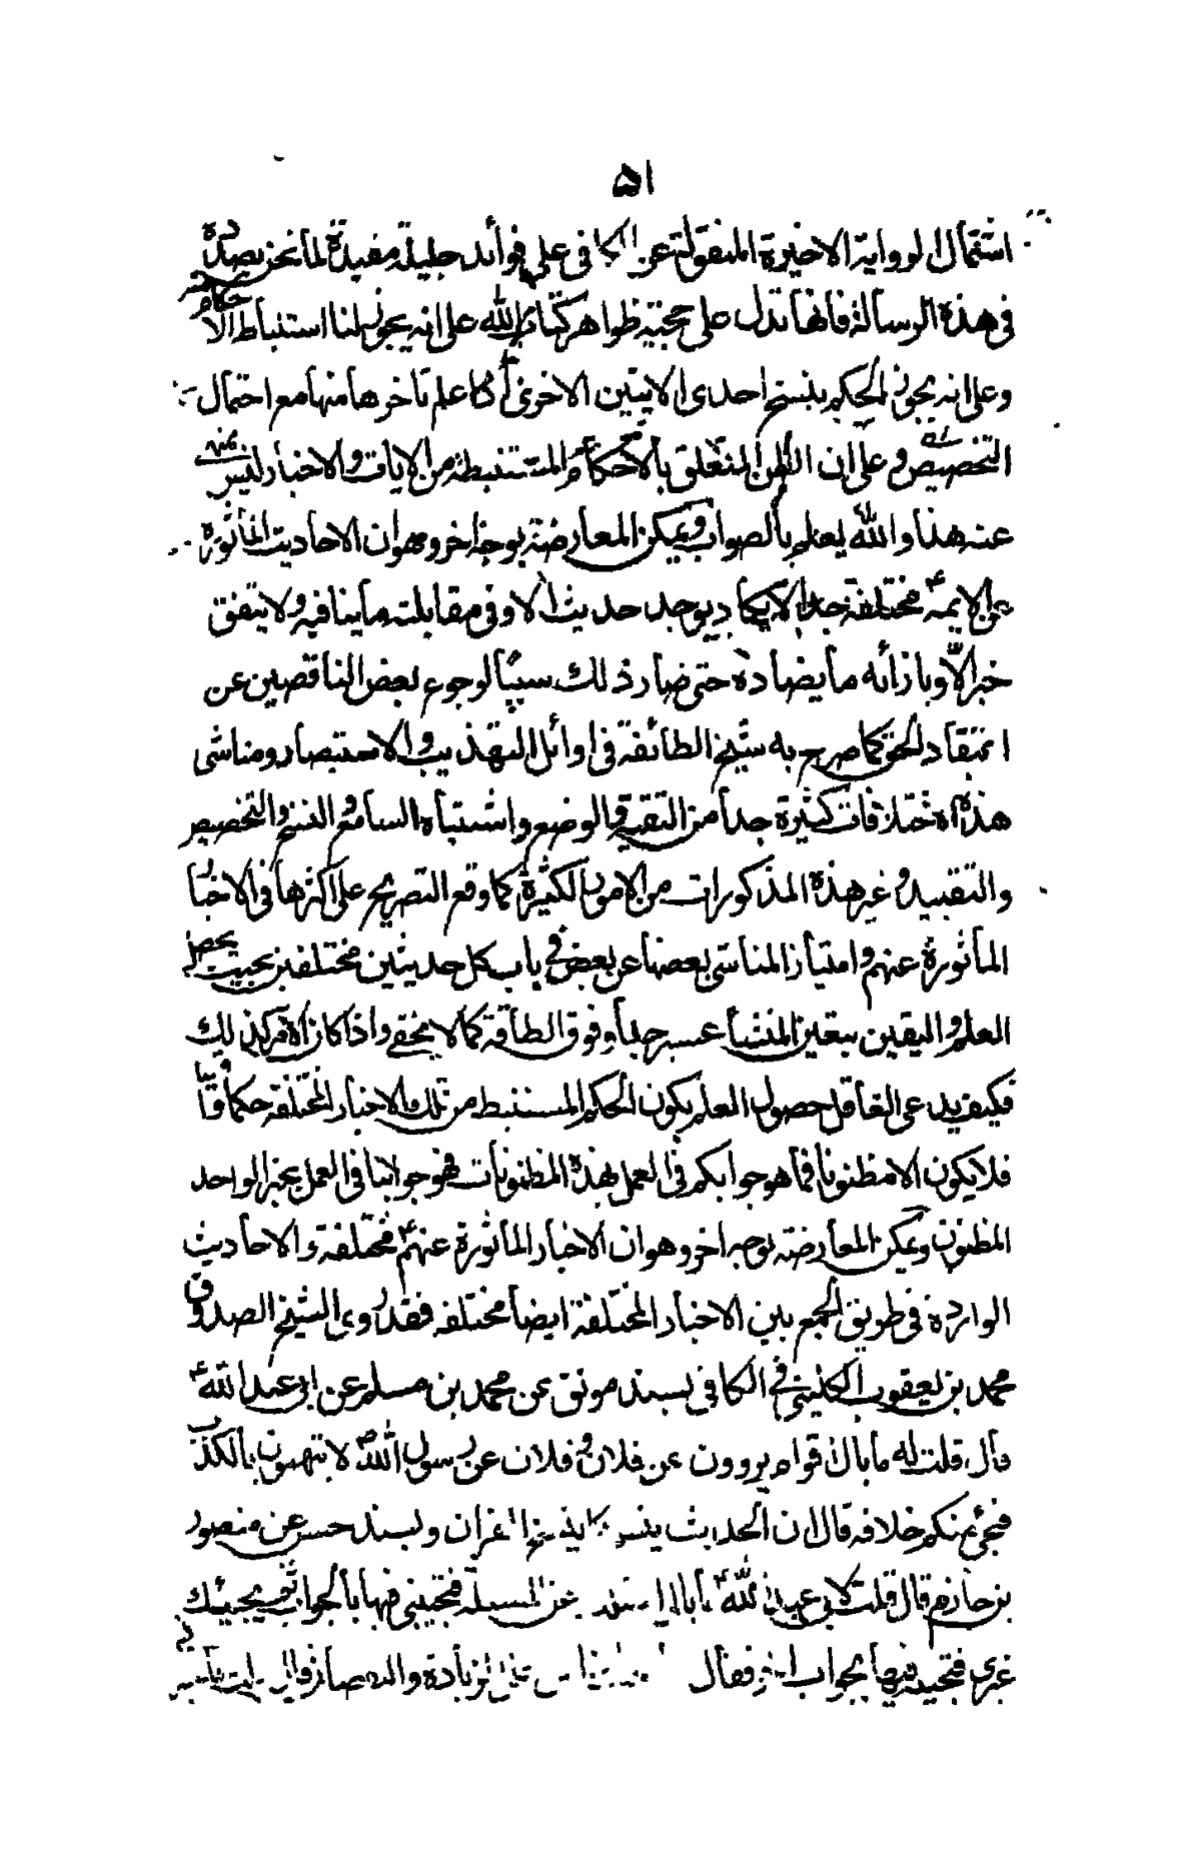 ٥١
اشتمال الرواية الاخيرة المنقولة عن الكافى على فوائد جليلة مفيدة لما نحن بصدده
فى هذه الرسالة فانها تدل على حجية ظواهر كتاب الله على انه يجوز لنا استنباط الاحكام
وعلى انه يجوز الحكم بنسخ احدى الايتين الاخرى اذا علم تاخرها منها مع احتمال
التخصيص وعلى ان الظن المتعلق بالاحكام المستنبطة من الايات والاخبار ليس
عنه هذا والله يعلم بالصواب ويمكن المعارضة بوجه اخر وهو ان الاحاديث المأثورة
عن الايمة ع مختلفة جدا لا يكاد يوجد حديث الا وفى مقابلته ما ينافيه ولا يتفق
خبر الا وبازائه ما يضاده حتى صار ذلك سببا لرجوع بعض الناقصين عن
اعتقاد الحق كما صرح به شيخ الطائفة فى اوائل التهذيب والاستبصار ومناشى
هذه الاختلافات كثيرة جدا من التقية والوضع واشتباه السامع والنسخ والتخصيص
والتقييد وغير هذه المذكورات من الامور الكثيرة كما وقع التصريح على اكثرها فى الاخبار
المأثورة عنهم وامتياز المناشى بعضها عن بعض فى باب كل حديثين مختلفين بحيث يحصل
العلم واليقين بتعين المنشأ عسر جدا وفوق الطاقة كما لا يخفى واذا كان الامر كذلك
فكيف يدعى العاقل حصول العلم بكون الحكم المستنبط من تلك الاخبار المختلفة حكما واقعيا
فلا يكون الا مظنونا فما هو جوابكم فى العمل بهذه المظنونات فهو جوابنا فى العمل بخبر الواحد
المظنون ويمكن المعارضة بوجه اخر وهو ان الاخبار المأثورة عنهم ع مختلفة والاحاديث
الواردة فى طريق الجمع بين الاخبار المختلفة ايضا مختلفه فقد روى الشيخ الصدوق
محمد بن يعقوب الكلينى فى الكافى بسند موثق عن محمد بن مسلم عن ابى عبد الله ع
قال قلت له ما بال اقوام يروون عن فلان وفلان عن رسول الله ص لا يتهمون بالكذب
فيجئ منكم خلافه قال ان الحديث ينسخ كما ينسخ القران وبسند حسن عن منصور
بن حازم قال قلت لابى عبد الله ع ما بالى اسئلك عن المسئلة فتجيبنى فيها بالجواب ثم يجيئك
غيرى فتجيبه فيها بجواب اخر فقال الناس على الزيادة والنقصان قال